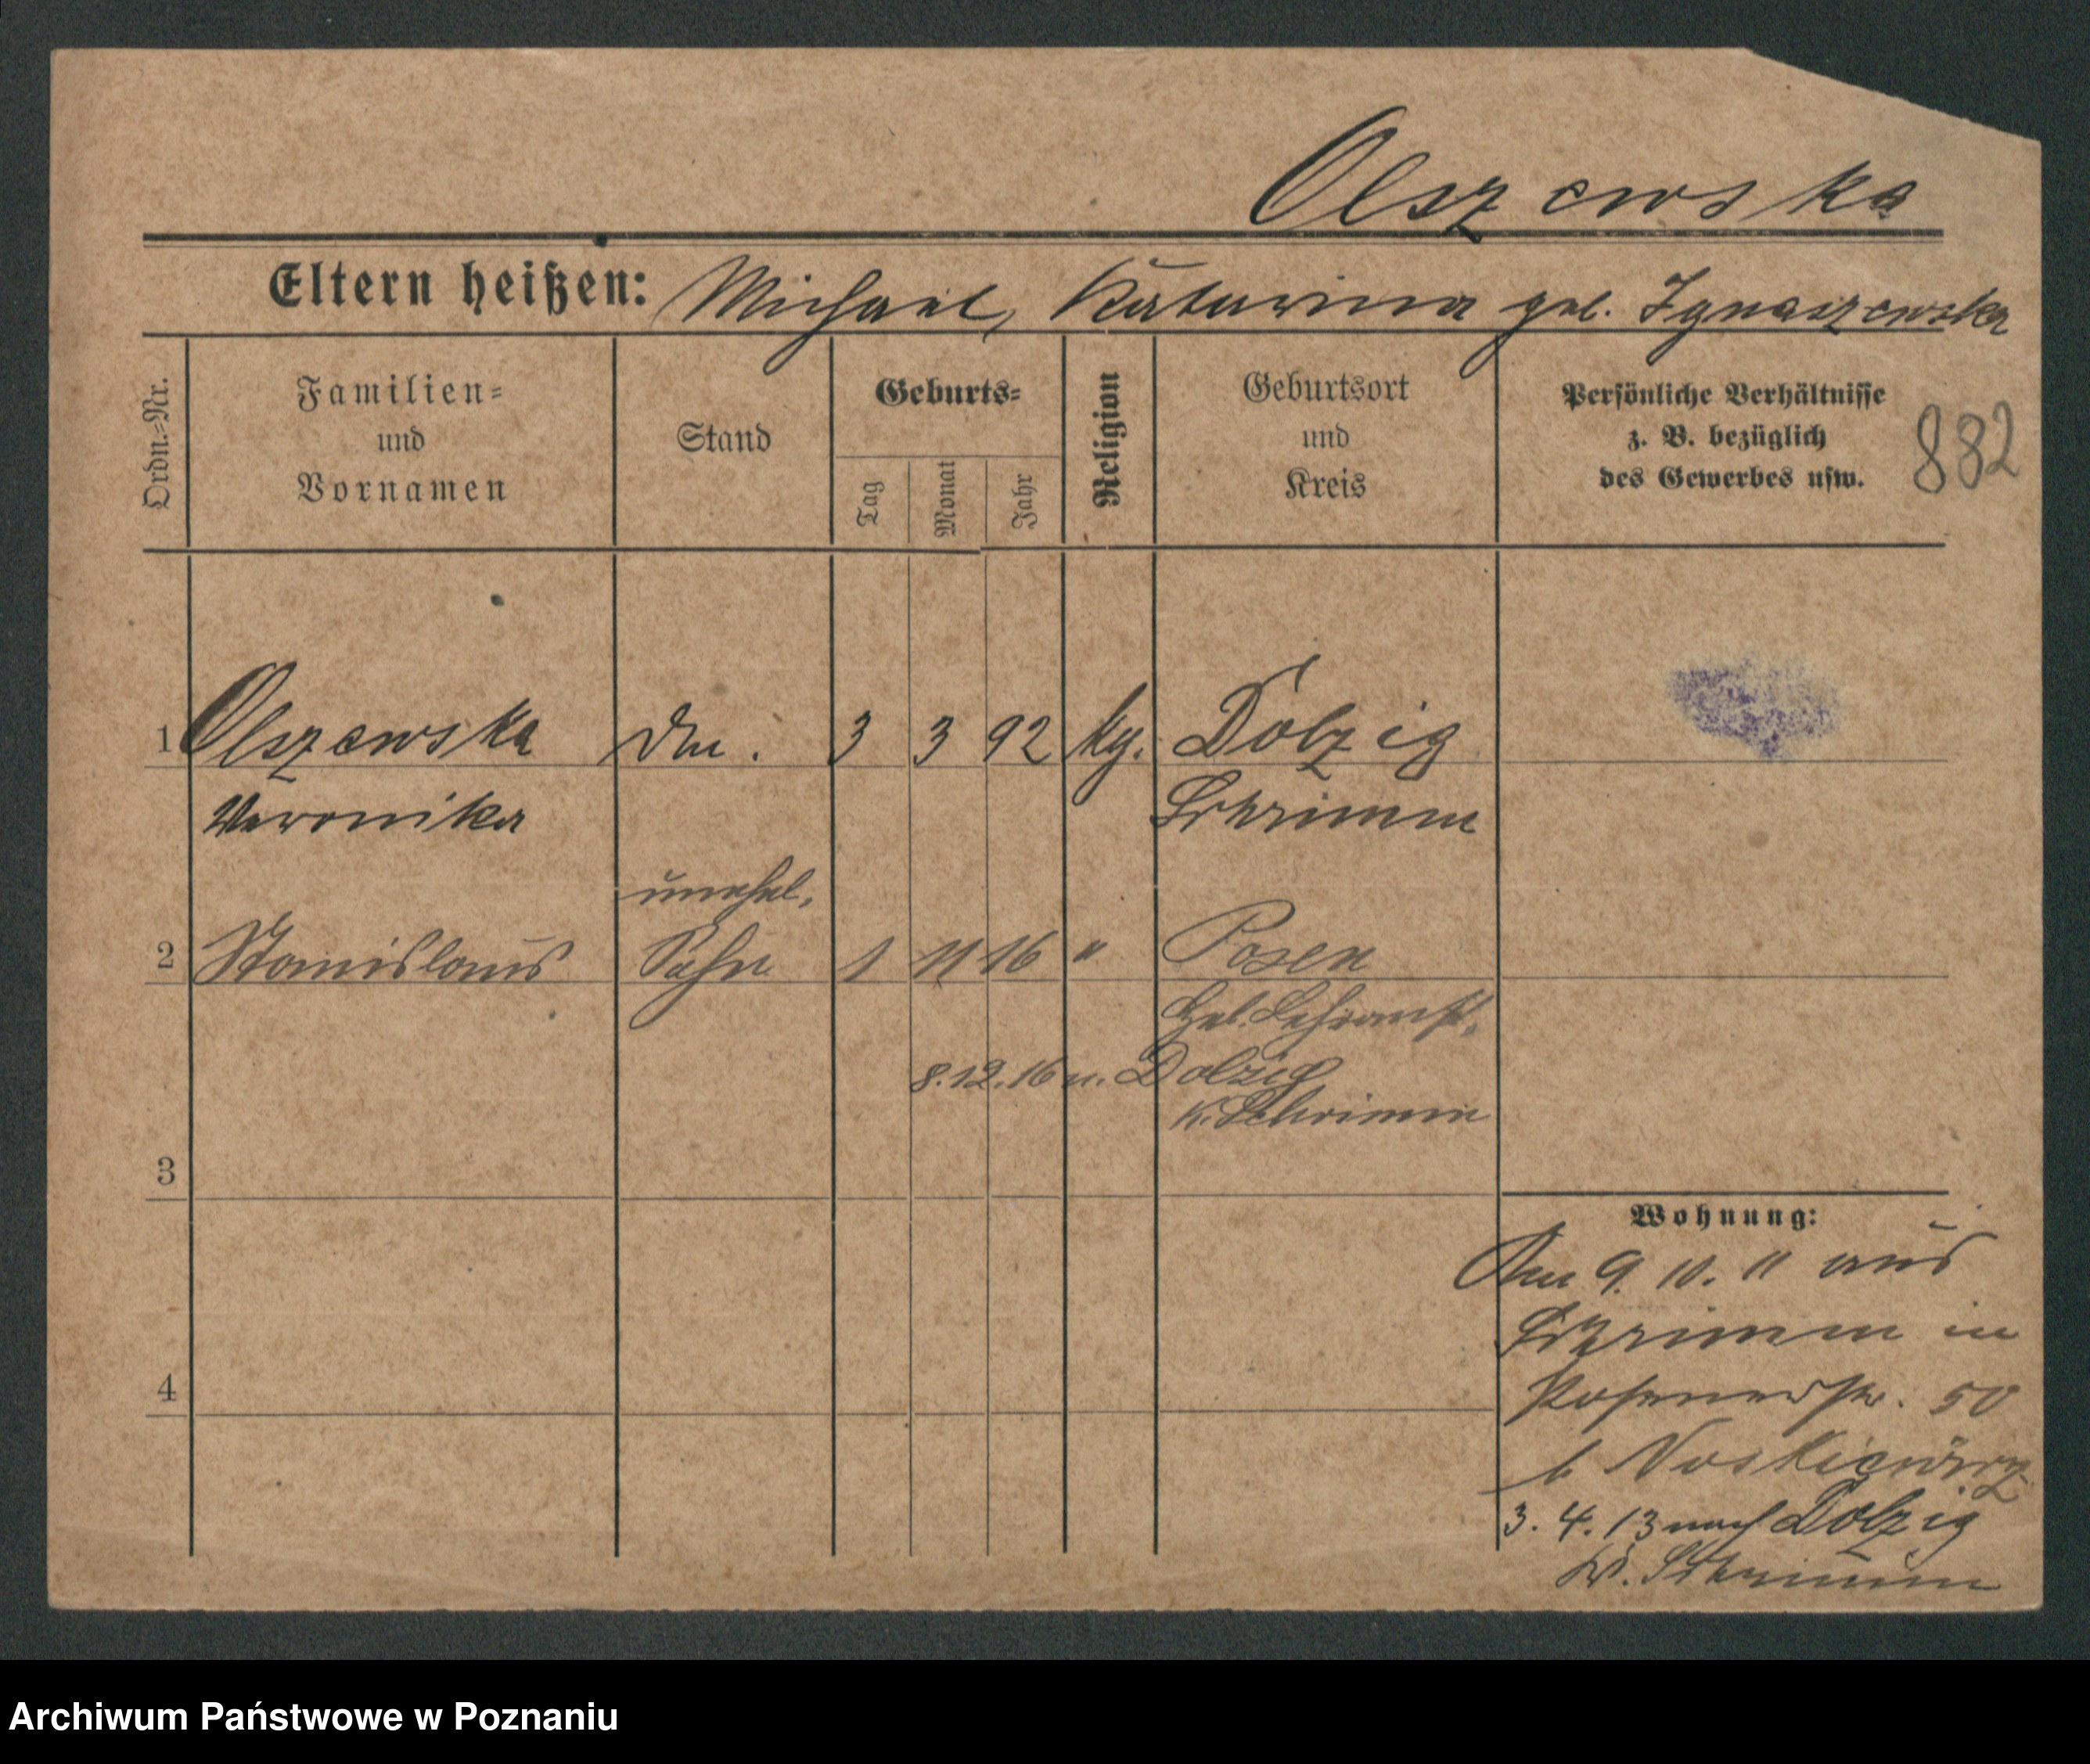 Olszewska
Eltern heißen: Michael, Katarina geb. Ignaszewska
Ordn.=Nr.
Familien=
und
Vornamen
Stand
Geburts=
Tag
Monat
Jahr
Religion
Geburtsort
und
Kreis
Persönliche Verhältnisse
z. B. bezüglich
des Gewerbes usw.
882
1 Olszewska 3 3 92 Dolzig
Veronika Schrimm
unehel.
2 Stanislaus Sohn 1 11 16 " Posen
8.12.16 n. Dolzig
K. Schrimm
3
4
Wohnung:
Am 9. 10. 11 aus
Schrimm in
Posenerstr. 50
b
3. 4. 13 nach Dolzig
Kr. Schrimm
Archiwum Państwowe w Poznaniu